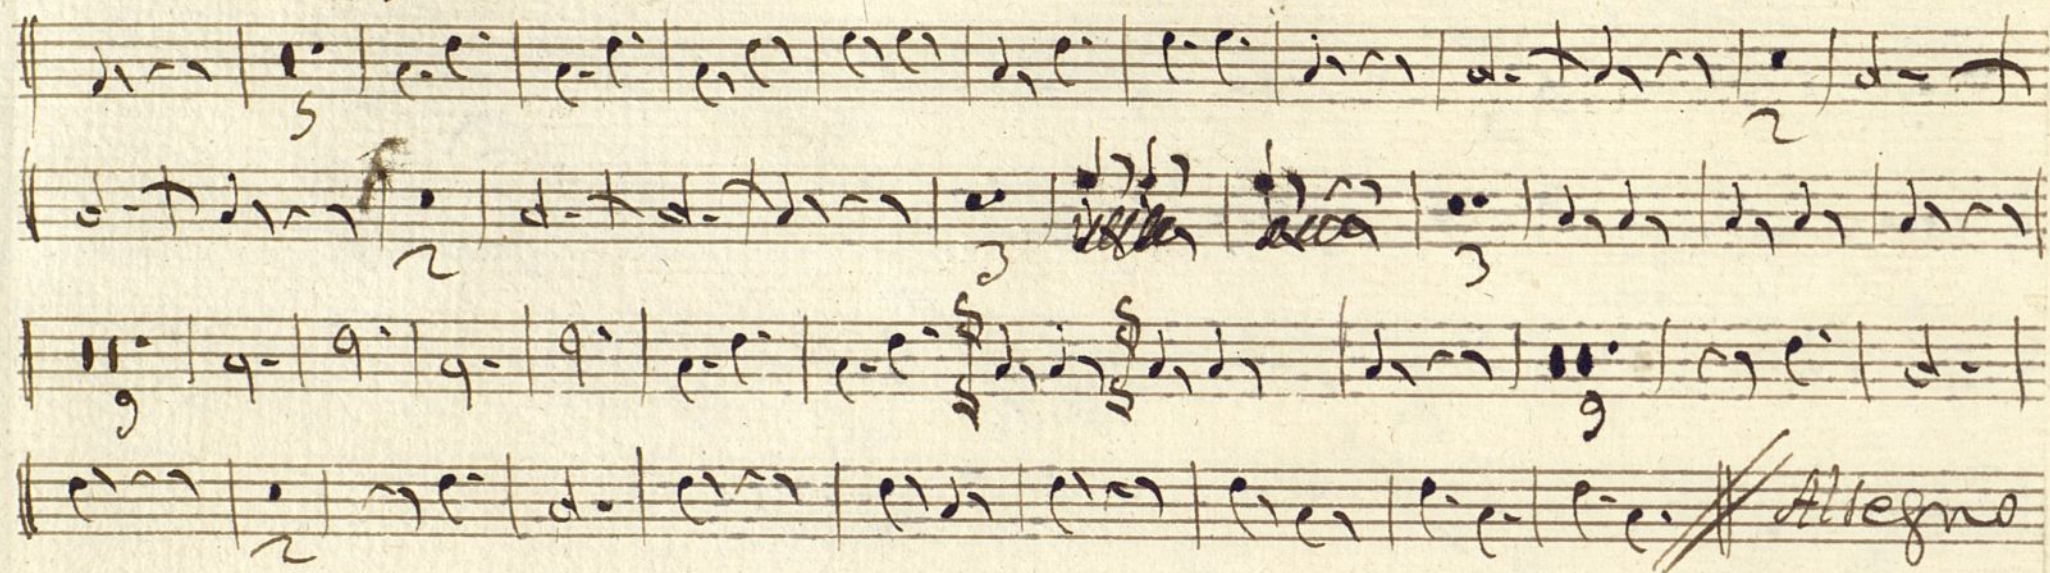 5 2
f 2 3 3
9 9
2 Allegro